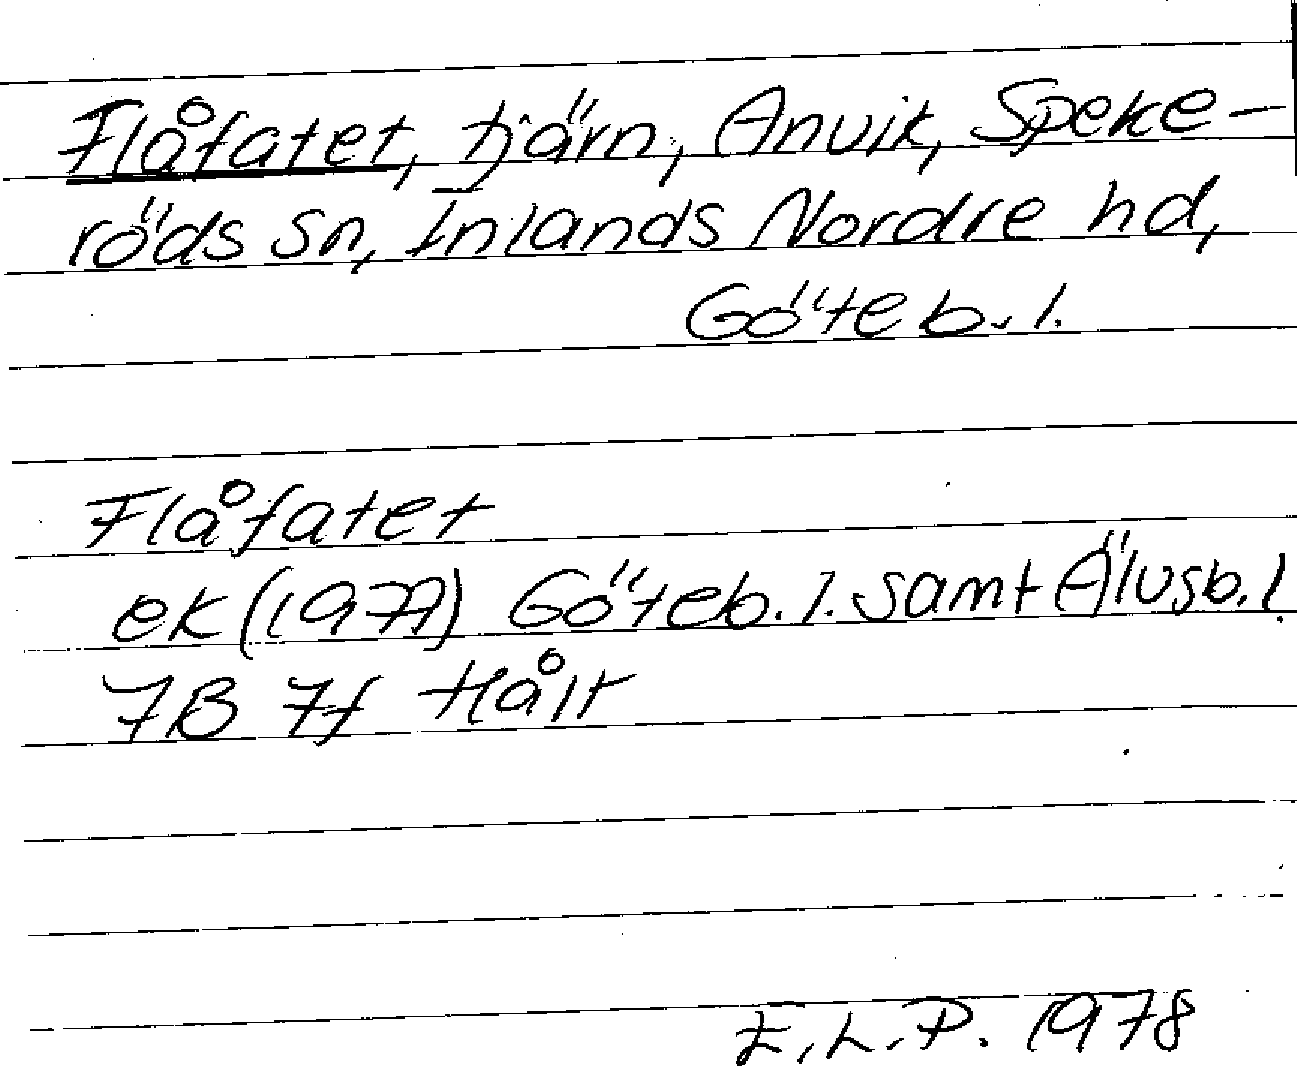 Flåfatet, tjärn, Anvik, Speke-
röds sn, Inlands Nordre hd,
Göteb. l.
Flåfatet
ek (1977) Göteb. l. samt Älvsb. l.
7B 7f Hålt
E.L.P. 1978